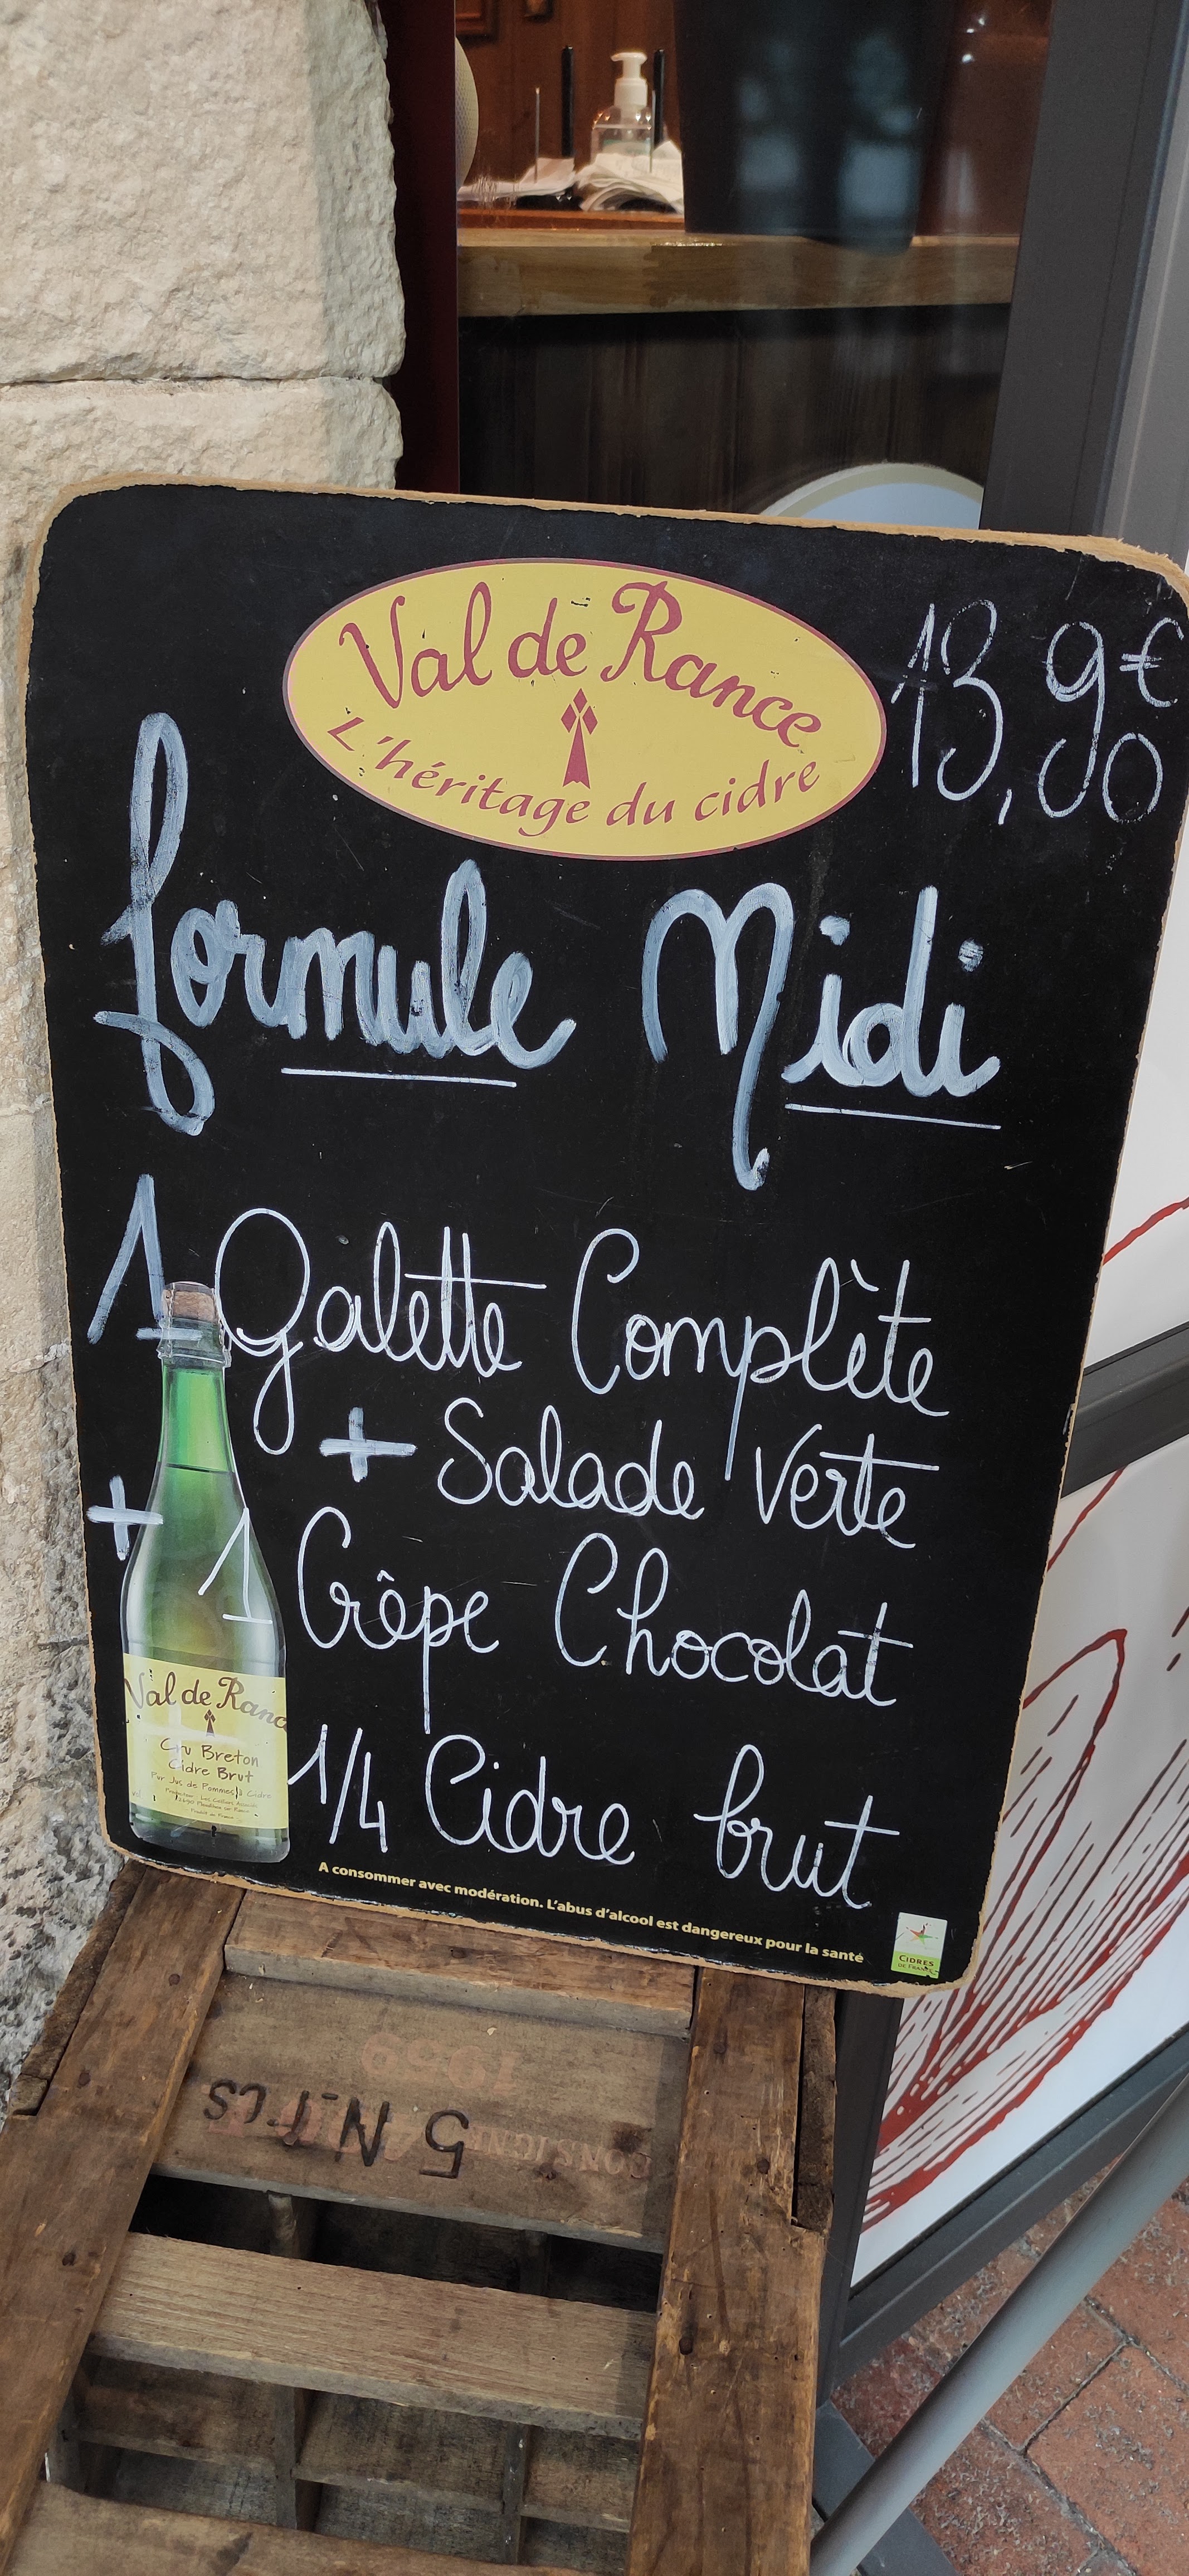 Val de Rance
L'héritage du cidre
13,90€
formule Midi
1 Galette Complète
+ Salade Verte
+ 1 Crêpe Chocolat
1/4 Cidre brut
Val de Rance
Cru Breton
Cidre Brut
Pur Jus de Pommes à Cidre
Produit en France
A consommer avec modération. L'abus d'alcool est dangereux pour la santé
CIDRES
DE FRANCE
CONSIGNE